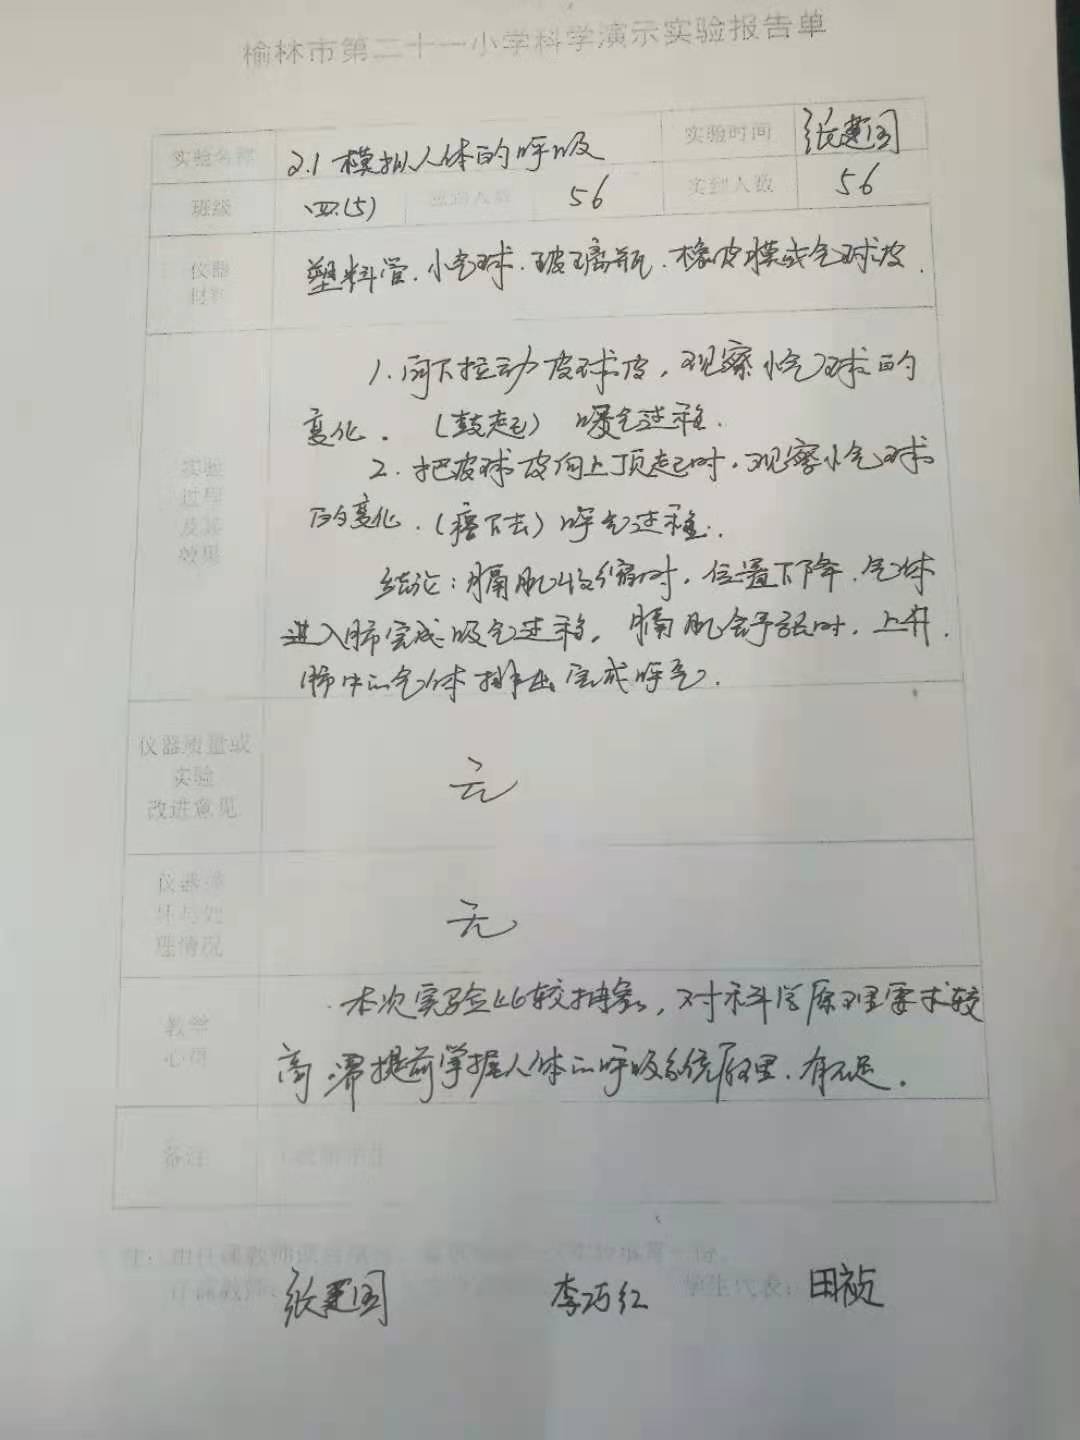 榆林市第二十一小学科学演示实验报告单
实验名称 2.1 模拟人体的呼吸 实验时间 张建国
班级 四(5) 应到人数 56 实到人数 56
仪器
材料
塑料管.小气球.玻璃瓶.橡皮膜或气球皮.
实验
过程
及其
效果
1.向下拉动皮球皮,观察小气球的
变化.(鼓起) 吸气过程.
2.把皮球皮向上顶起时,观察小气球
的变化.(瘪下去)呼气过程.
结论:膈肌收缩时,位置下降.气体
进入肺完成吸气过程,膈肌舒张时.上升.
肺中的气体排出完成呼气.
仪器质量或
实验
改进意见
无
理情况
无
教学
心得
本次实验比较抽象,对科学原理要求较
高.需提前掌握人体的呼吸系统原理.有不足.
备注
注:
任课教师: 张建国 李巧红 学生代表: 田祯